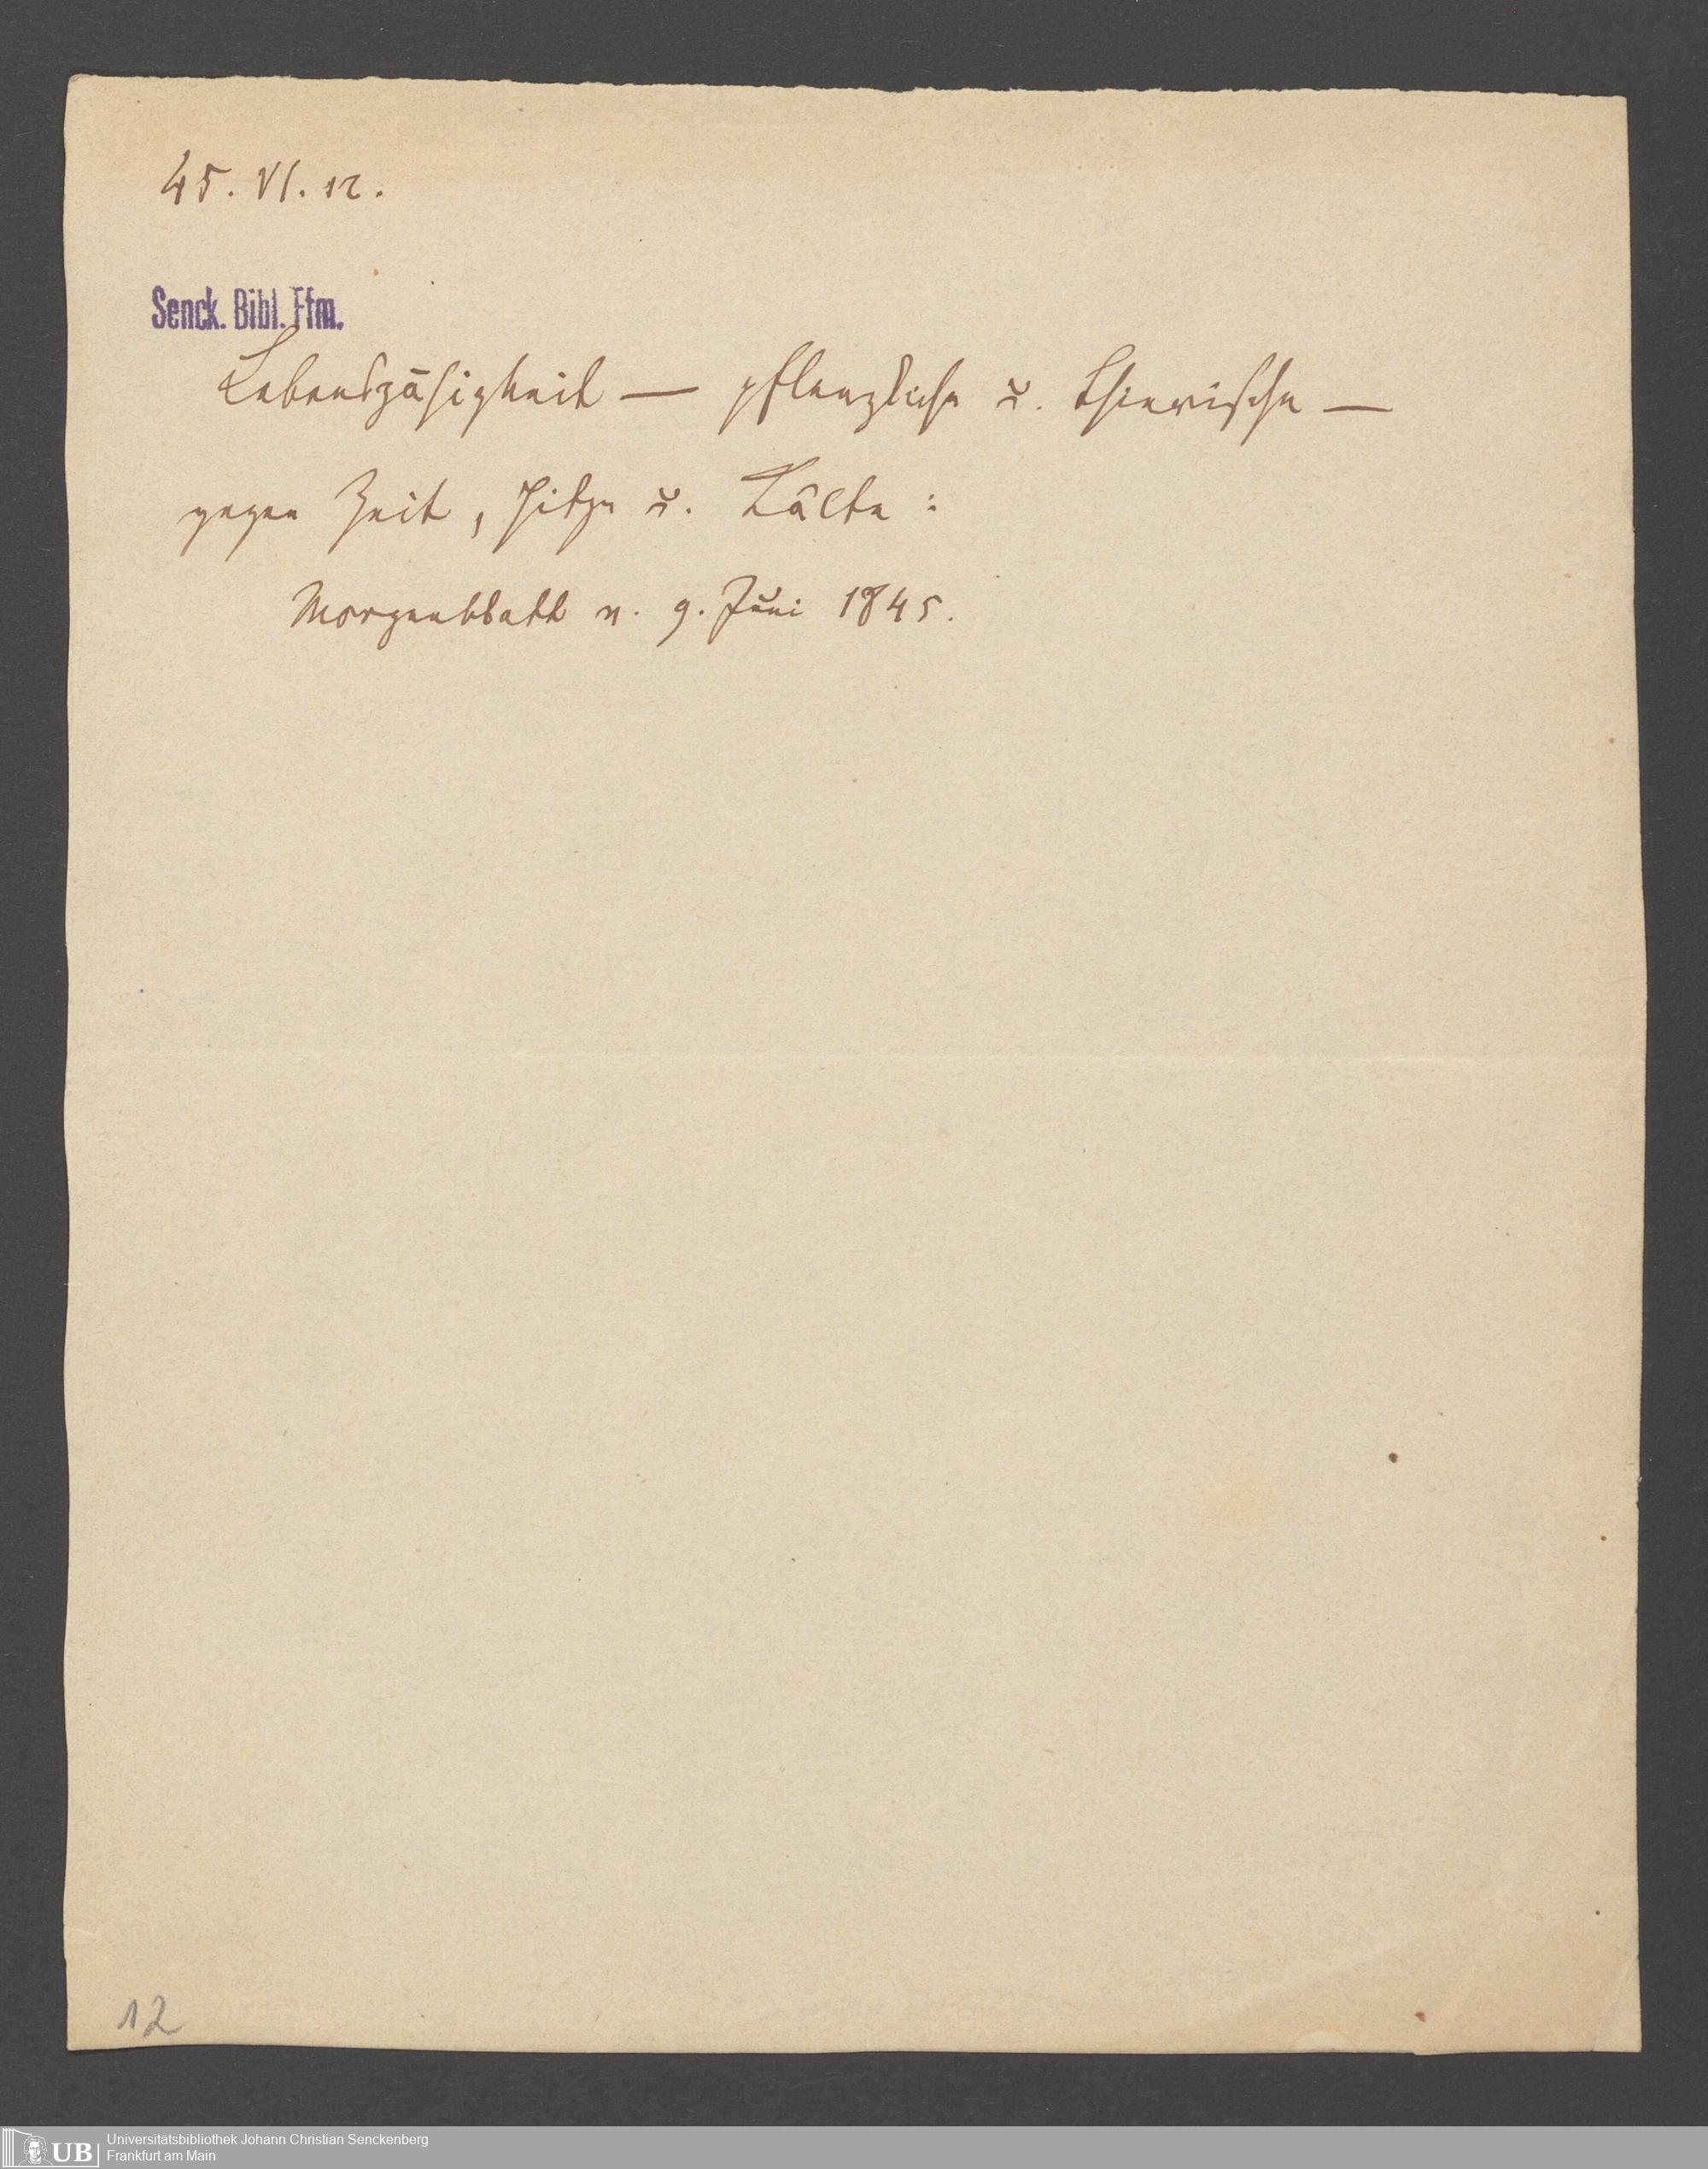 45. VI. 12.
Senck. Bibl. Ffm.
Lebenszähigkeit — pflanzliche u. thierische —
gegen Zeit, Hitze u. Kälte:
Morgenblatt v. 9. Juni 1845.
12
UB
Universitätsbibliothek Johann Christian Senckenberg
Frankfurt am Main